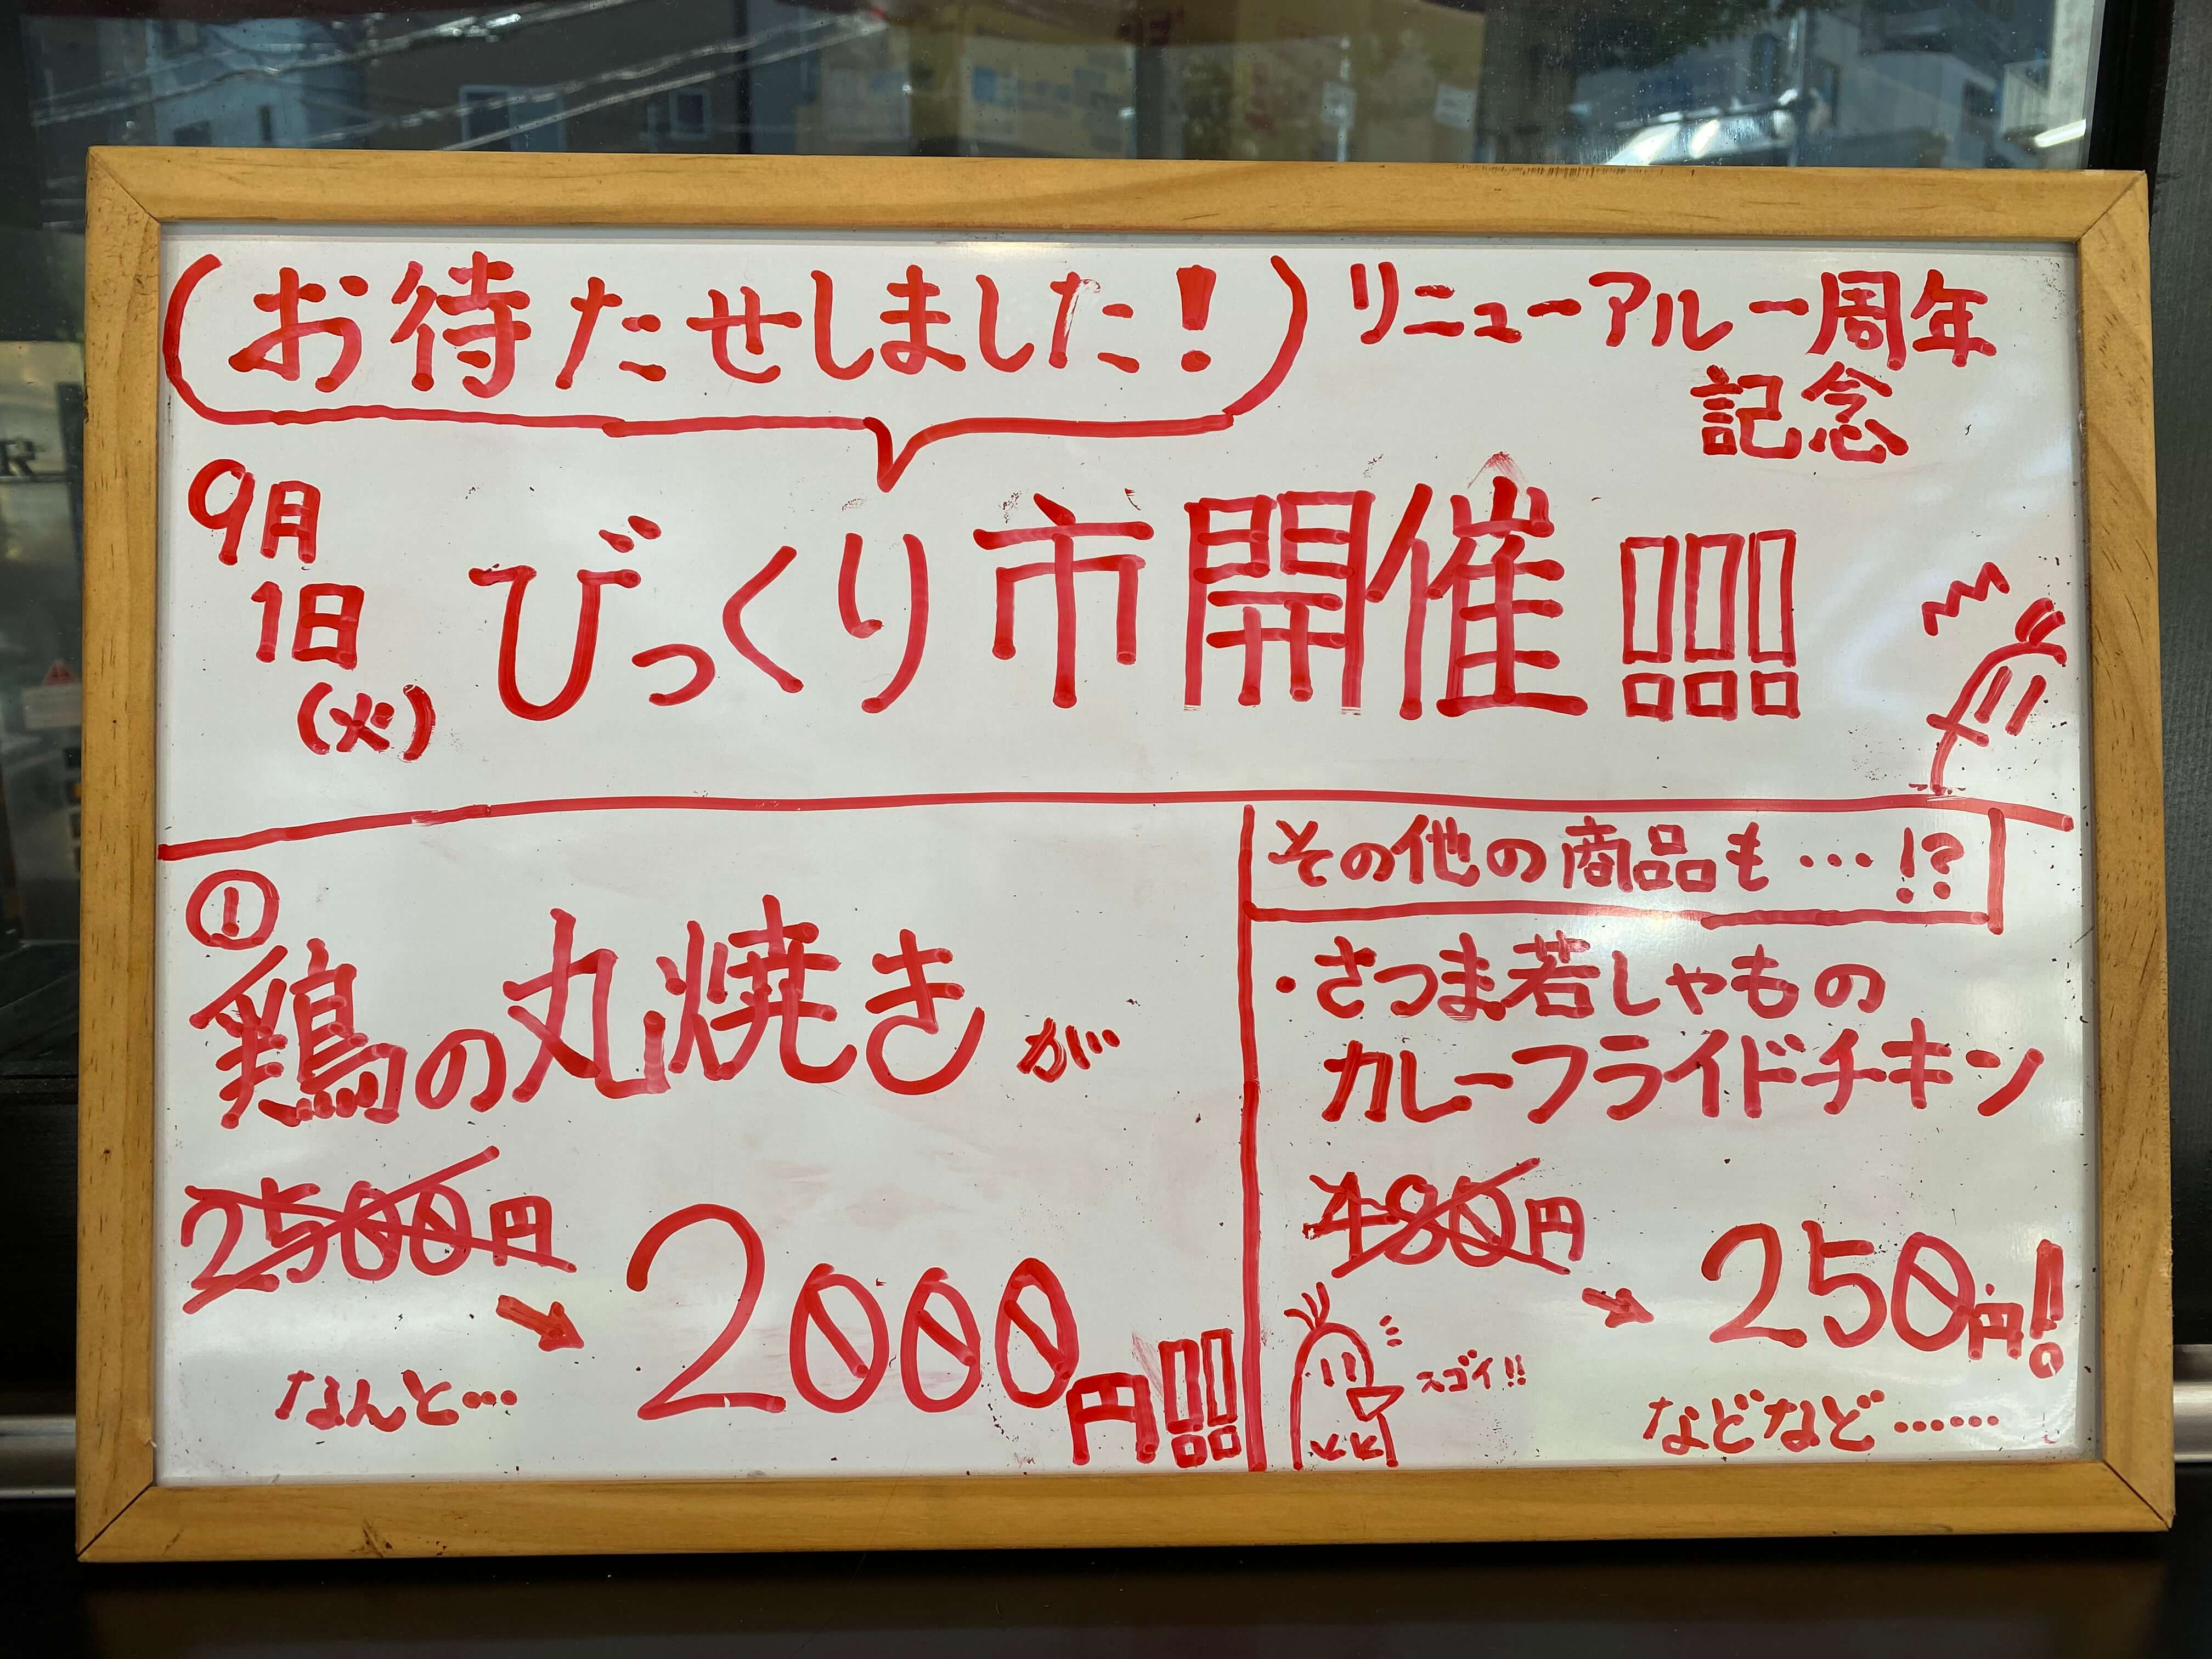 お待たせしました!
リニューアル一周年
記念
9月
1日
(火)
びっくり市開催!!!
①
鶏の丸焼きが…
2500円
なんと…
2000円!!
その他の商品も…!?
・さつま若しゃもの
カレーフライドチキン
480円
250円!
スゴイ!!
などなど……